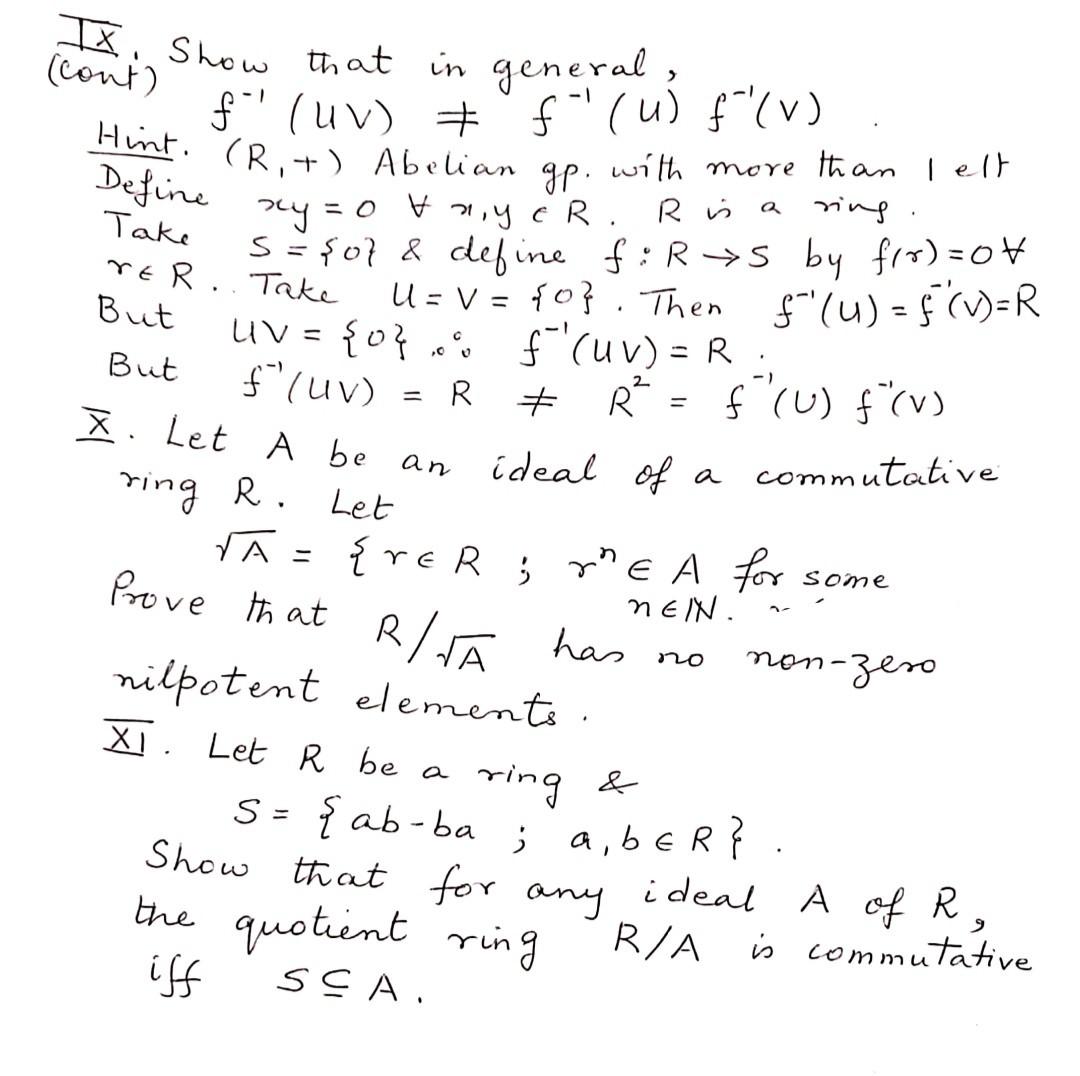 IX. Show that in general,
(cont) f⁻¹(UV) ≠ f⁻¹(U) f⁻¹(V).
Hint. (R,+) Abelian gp. with more than 1 elt
Define xy = 0 ∀ x,y ∈ R. R is a ring.
Take S = {0} & define f : R → S by f(r) = 0 ∀
r ∈ R. . Take U = V = {0}. Then f⁻¹(U) = f⁻¹(V) = R
But UV = {0} ∴ f⁻¹(UV) = R.
But f⁻¹(UV) = R ≠ R² = f⁻¹(U) f⁻¹(V)
X. Let A be an ideal of a commutative
ring R. Let
√A = {r ∈ R ; rⁿ ∈ A for some
n ∈ ℕ.
Prove that R/√A has no non-zero
nilpotent elements.
XI. Let R be a ring &
S = {ab - ba ; a, b ∈ R}.
Show that for any ideal A of R,
the quotient ring R/A is commutative
iff S ⊆ A.